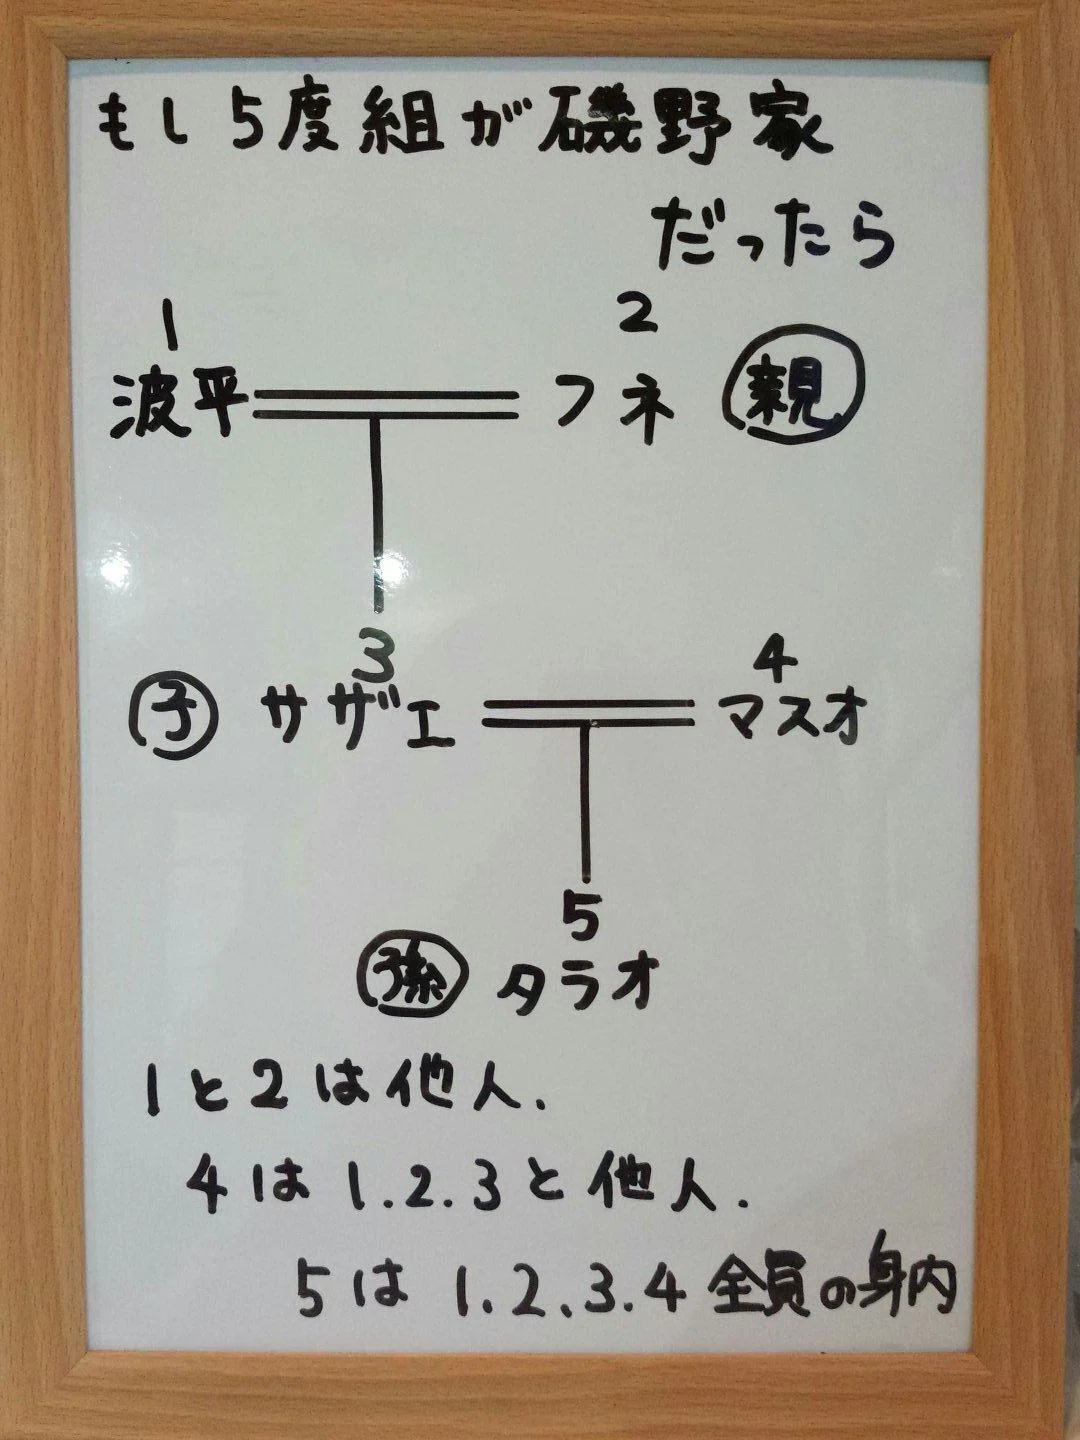 もし5度組が磯野家
だったら
1 2
波平 フネ 親
3 4
子 サザエ マスオ
5
孫 タラオ
1と2は他人.
4は1.2.3と他人.
5は1.2.3.4全員の身内